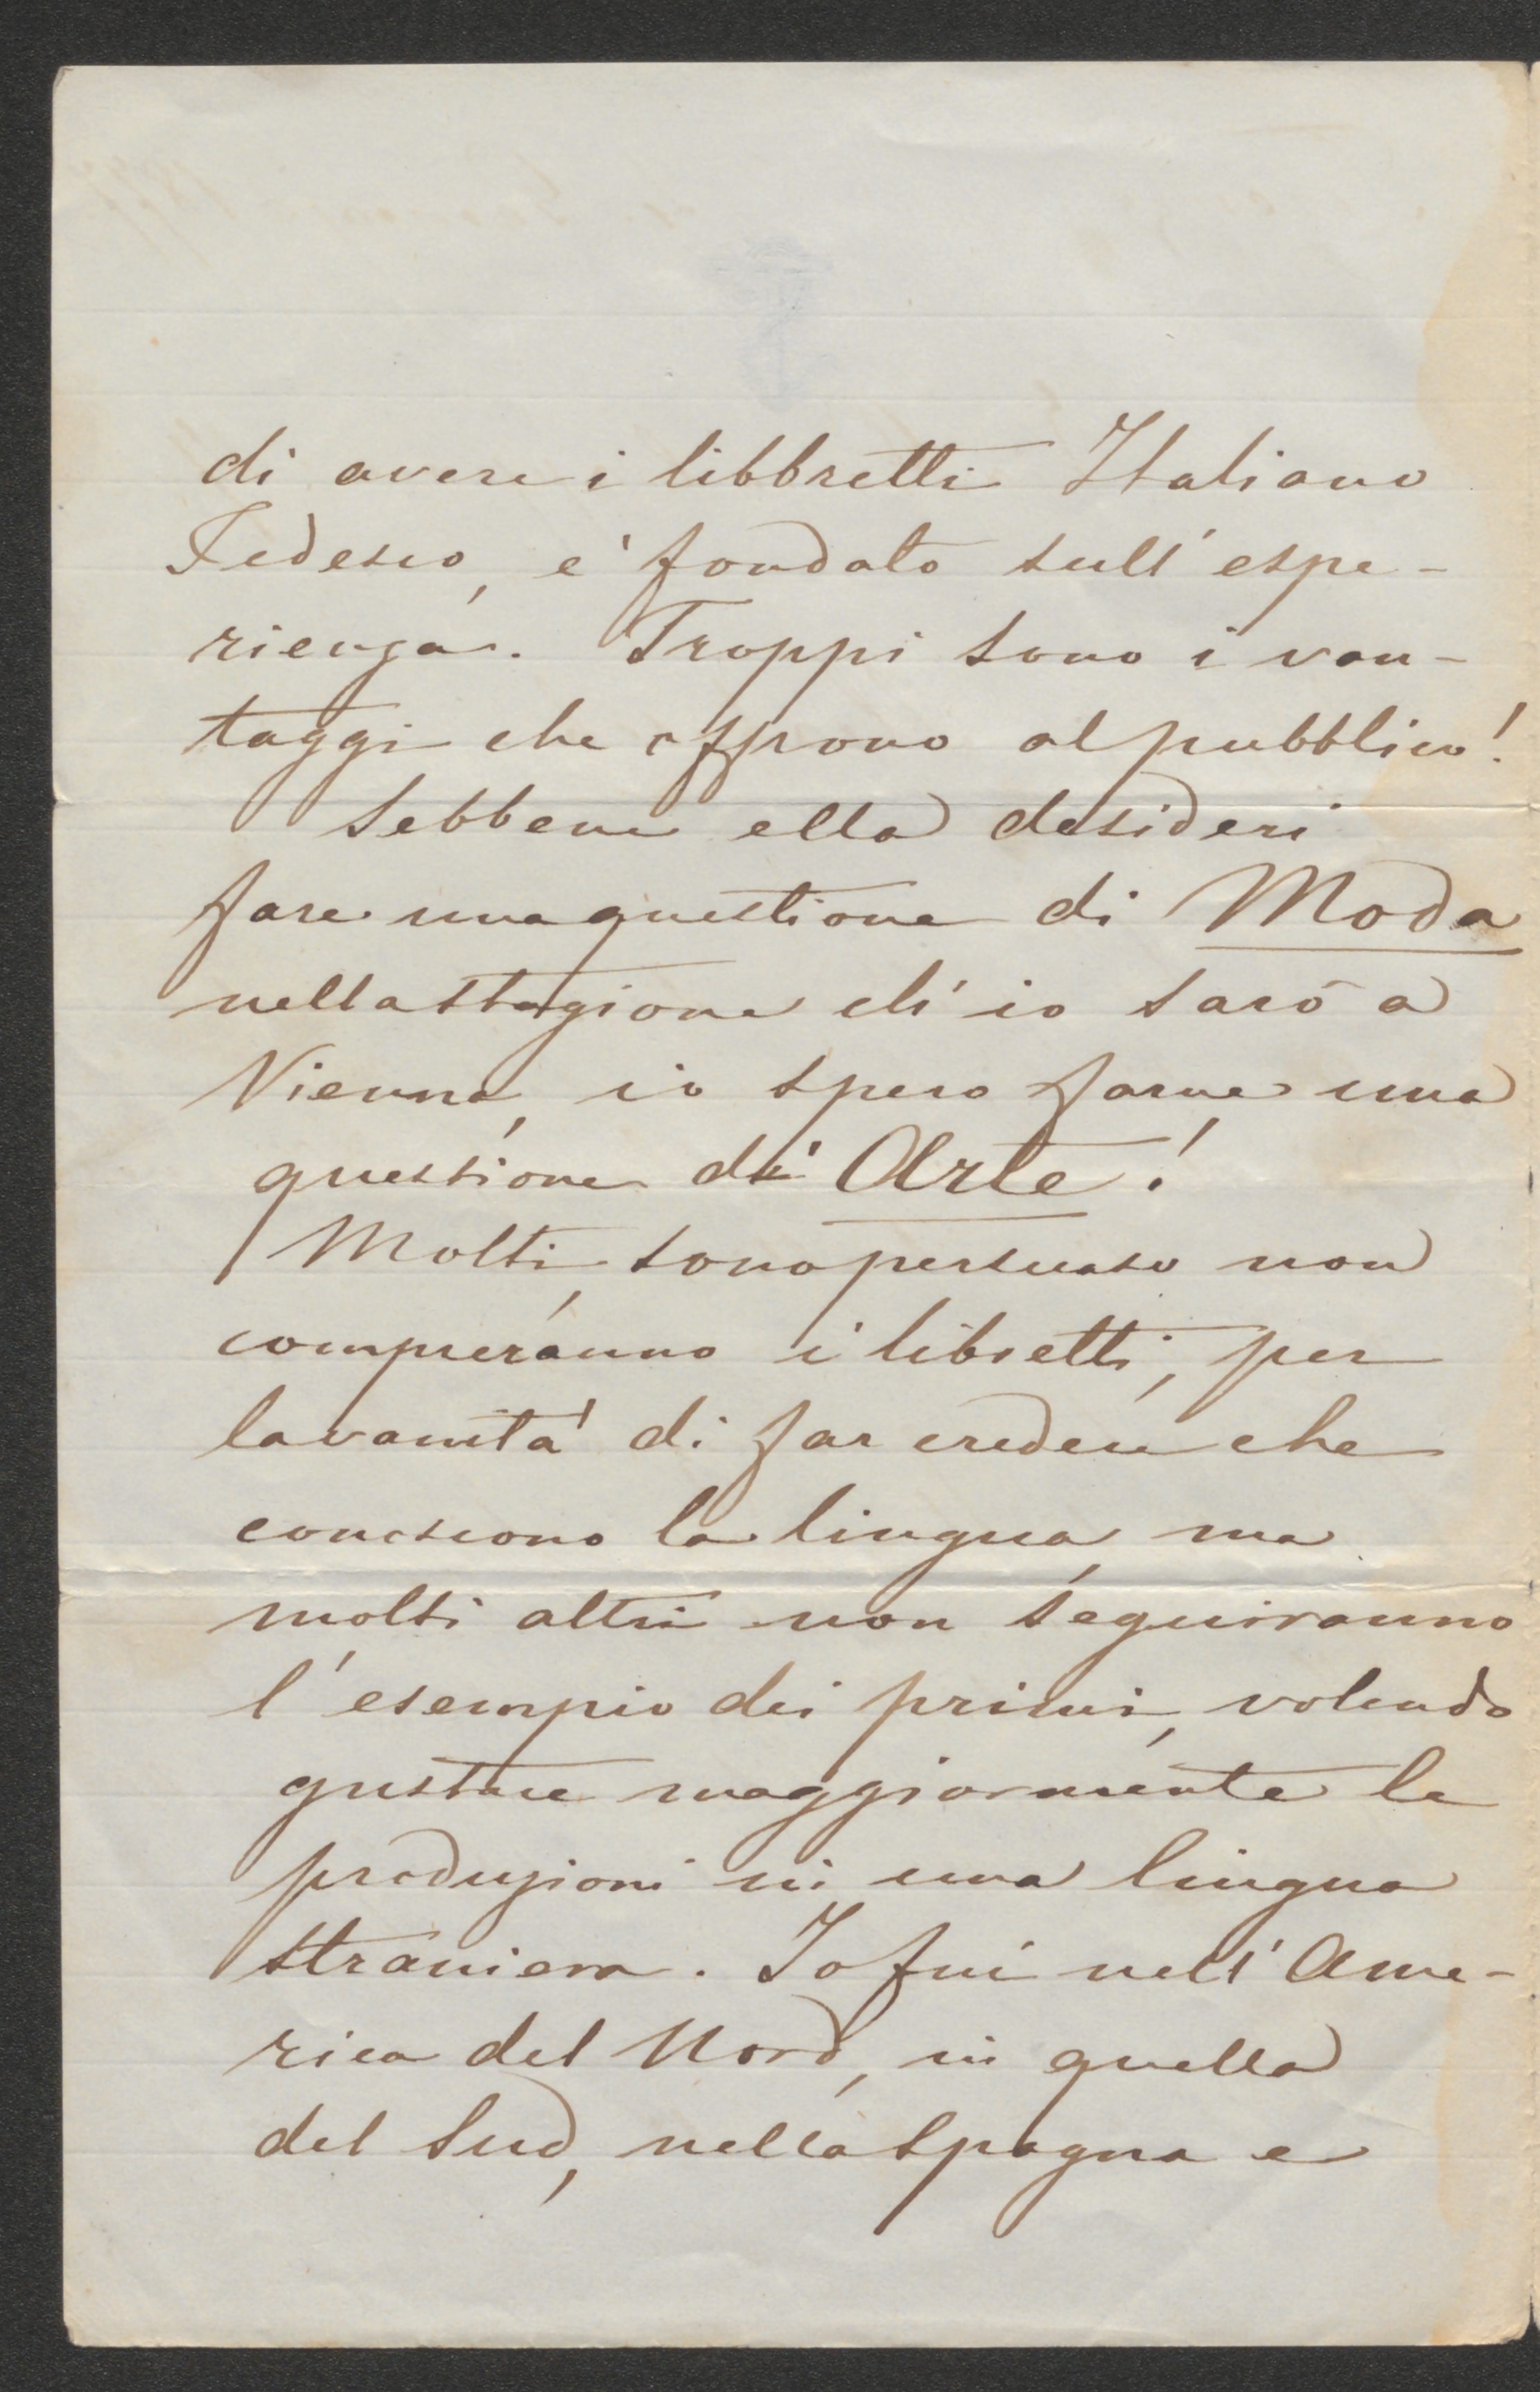 di avere i libbretti Italiano
Tedesco, e' fondato sull'espe-
rienza. Troppi sono i van-
taggi che offrono al pubblico!
Sebbene ella desideri
fare una questione di Moda
nella stagione ch'io sarò a
Vienna, io spero farne una
questione di Arte!
Molti, sono persuaso non
compreranno i libretti, per
la vanita' di far credere che
conoscono la lingua, ma
molti altri non seguiranno
l'esempio dei primi, volendo
gustare maggiormente le
produzioni in una lingua
straniera. Io fui nell'Ame-
rica del Nord, in quella
del Sud, nella Spagna e